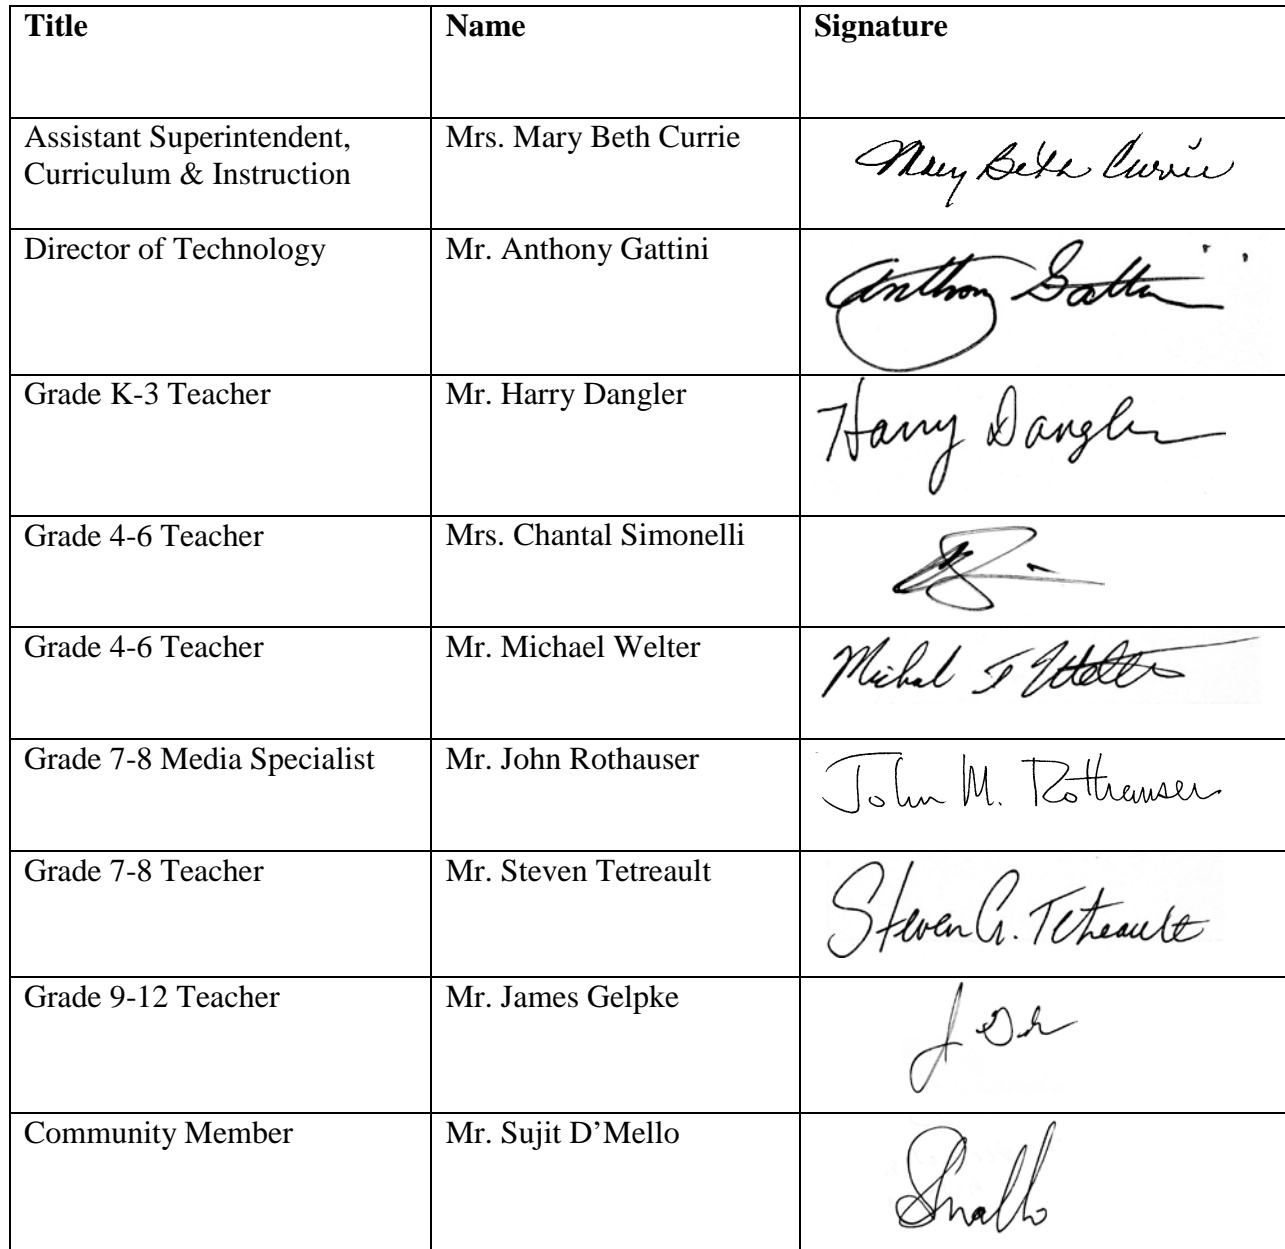 Title Name Signature
Assistant Superintendent, Mrs. Mary Beth Currie Mary Beth Currie
Curriculum & Instruction
Director of Technology Mr. Anthony Gattini Anthony Gattini
Grade K-3 Teacher Mr. Harry Dangler Harry Dangler
Grade 4-6 Teacher Mrs. Chantal Simonelli
Grade 4-6 Teacher Mr. Michael Welter Michael F Welter
Grade 7-8 Media Specialist Mr. John Rothauser John M. Rothauser
Grade 7-8 Teacher Mr. Steven Tetreault Steven G. Tetreault
Grade 9-12 Teacher Mr. James Gelpke
Community Member Mr. Sujit D’Mello